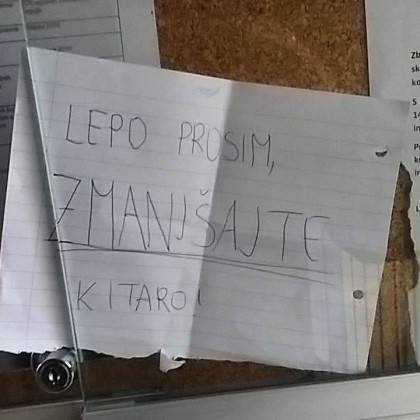 LEPO PROSIM,
ZMANJŠAJTE
KITARO!